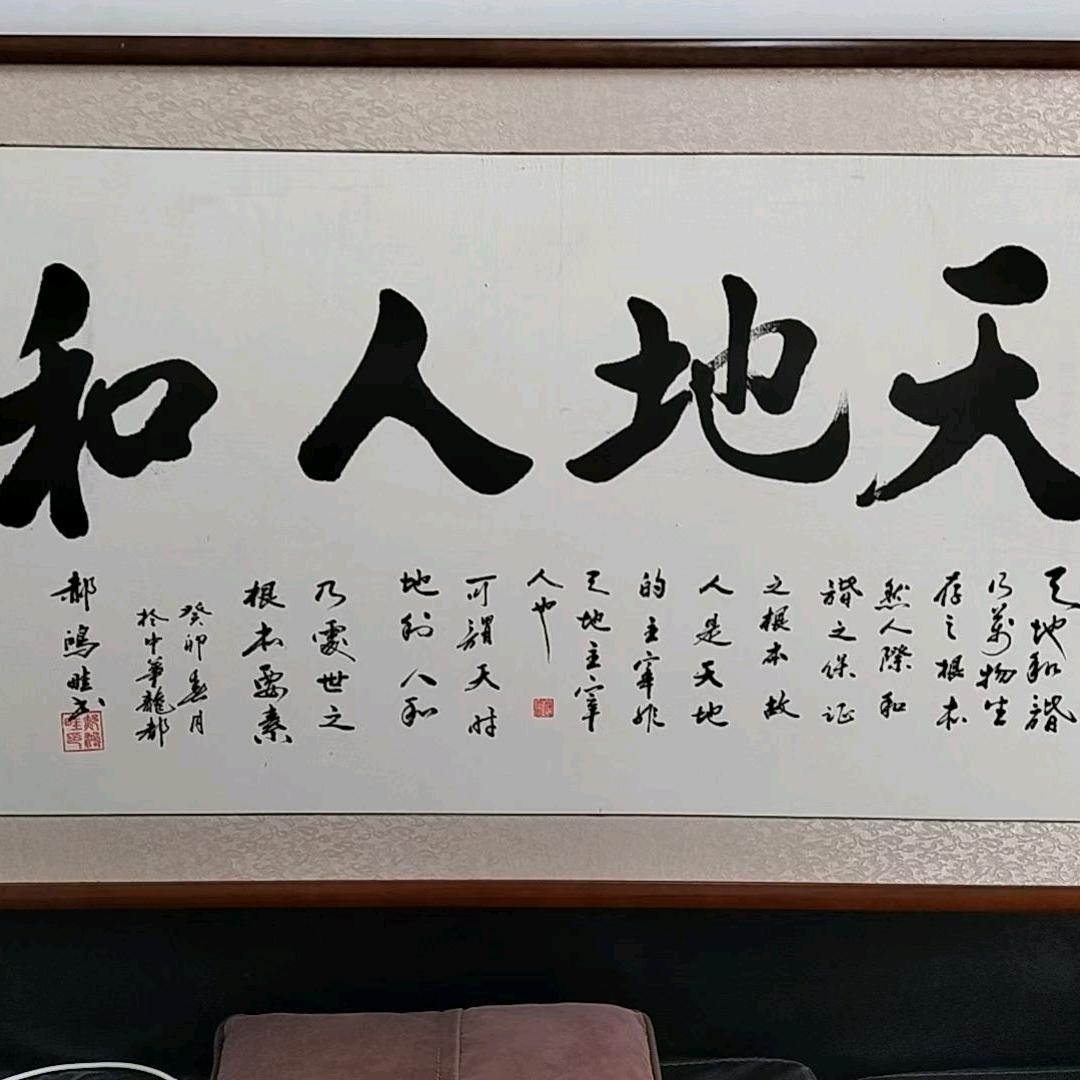 天地人和
天地和諧
乃萬物生
存之根本
然人際和
諧之保证
之根本故
人是天地
的主宰非
天地主宰
人也
可謂天时
地利人和
乃處世之
根本要素
癸卯春月
於中華龍都
郝鴻